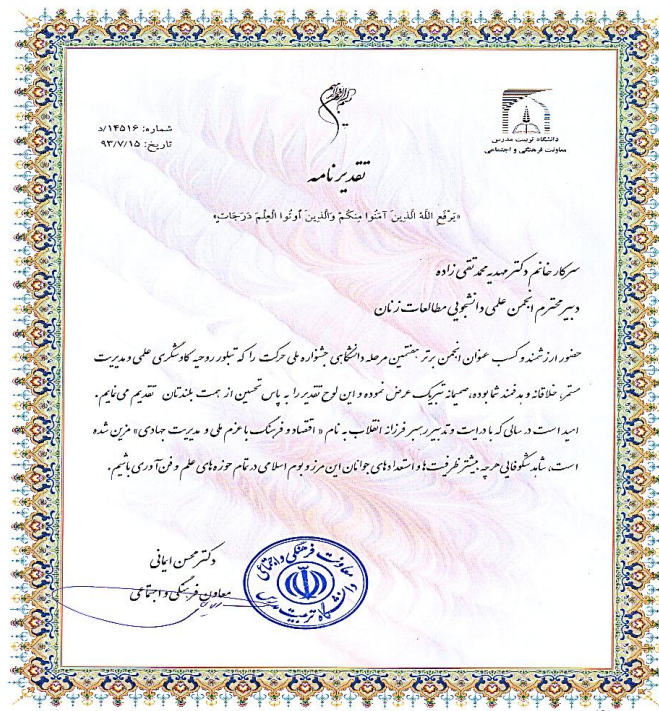 بسم الله الرحمن الرحیم
دانشگاه تربیت مدرس
معاونت فرهنگی و اجتماعی
شماره: ۱۴۵۱۶/د
تاریخ: ۹۳/۷/۱۵
تقدیرنامه
«یَرْفَعِ اللَّهُ الَّذینَ آمَنُوا مِنکُمْ وَالَّذینَ أُوتُوا الْعِلْمَ دَرَجَاتٍ»
سرکار خانم دکتر مهدیه محمدتقی زاده
دبیر محترم انجمن علمی دانشجویی مطالعات زنان
حضور ارزشمند و کسب عنوان انجمن برتر هفتمین مرحله دانشگاهی جشنواره ملی حرکت را که تبلور روحیه کاوشگری علمی و مدیریت
مستمر، خلاقانه و هدفمند شما بوده، صمیمانه تبریک عرض نموده و این لوح تقدیر را به پاس تحسین از همت بلندتان تقدیم می نمایم.
امید است در سالی که با درایت و تدبیر رهبر فرزانه انقلاب به نام «اقتصاد و فرهنگ با عزم ملی و مدیریت جهادی» مزین شده
است، شاهد شکوفایی هرچه بیشتر ظرفیت ها و استعدادهای جوانان این مرز و بوم اسلامی در تمام حوزه های علم و فن آوری باشیم.
دکتر محسن ایمانی
معاون فرهنگی و اجتماعی
معاونت فرهنگی و اجتماعی
دانشگاه تربیت مدرس